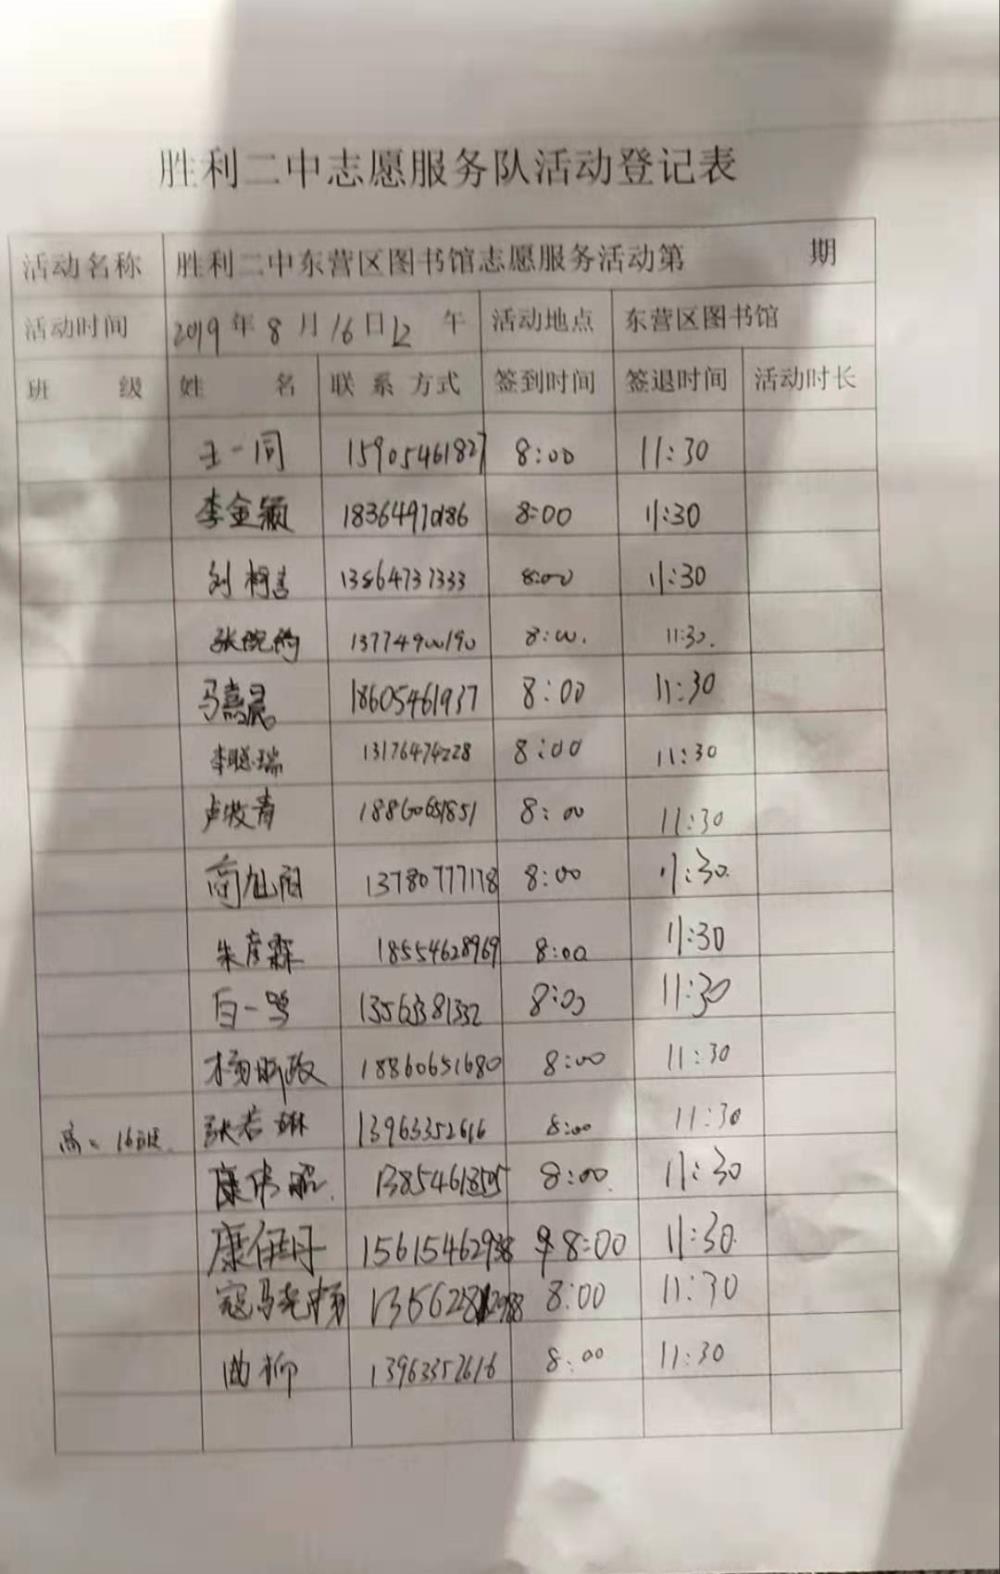 胜利二中志愿服务队活动登记表
活动名称 胜利二中东营区图书馆志愿服务活动第 期
活动时间 2019年8月16日12午 活动地点 东营区图书馆
班 级 姓 名 联系方式 签到时间 签退时间 活动时长
王一同 15905461827 8:00 11:30
李金颖 8:00 11:30
刘柯言 13564737333 8:00 11:30
13774900190 8:00. 11:30.
马嘉晨 18605461937 8:00 11:30
李聪瑞 13176474228 8:00 11:30
卢牧青 18860651851 8:00 11:30
13780777178 8:00 11:30.
朱彦霖 18554628969 8:00 11:30
白一 8:00 11:30
杨 18860651680 8:00 11:30
高二16班. 张若琳 13963352616 8:00 11:30
康 8:00. 11:30
康伊丹 8:00 11:30.
寇马 8:00 11:30
曲柳 13963352616 8:00 11:30